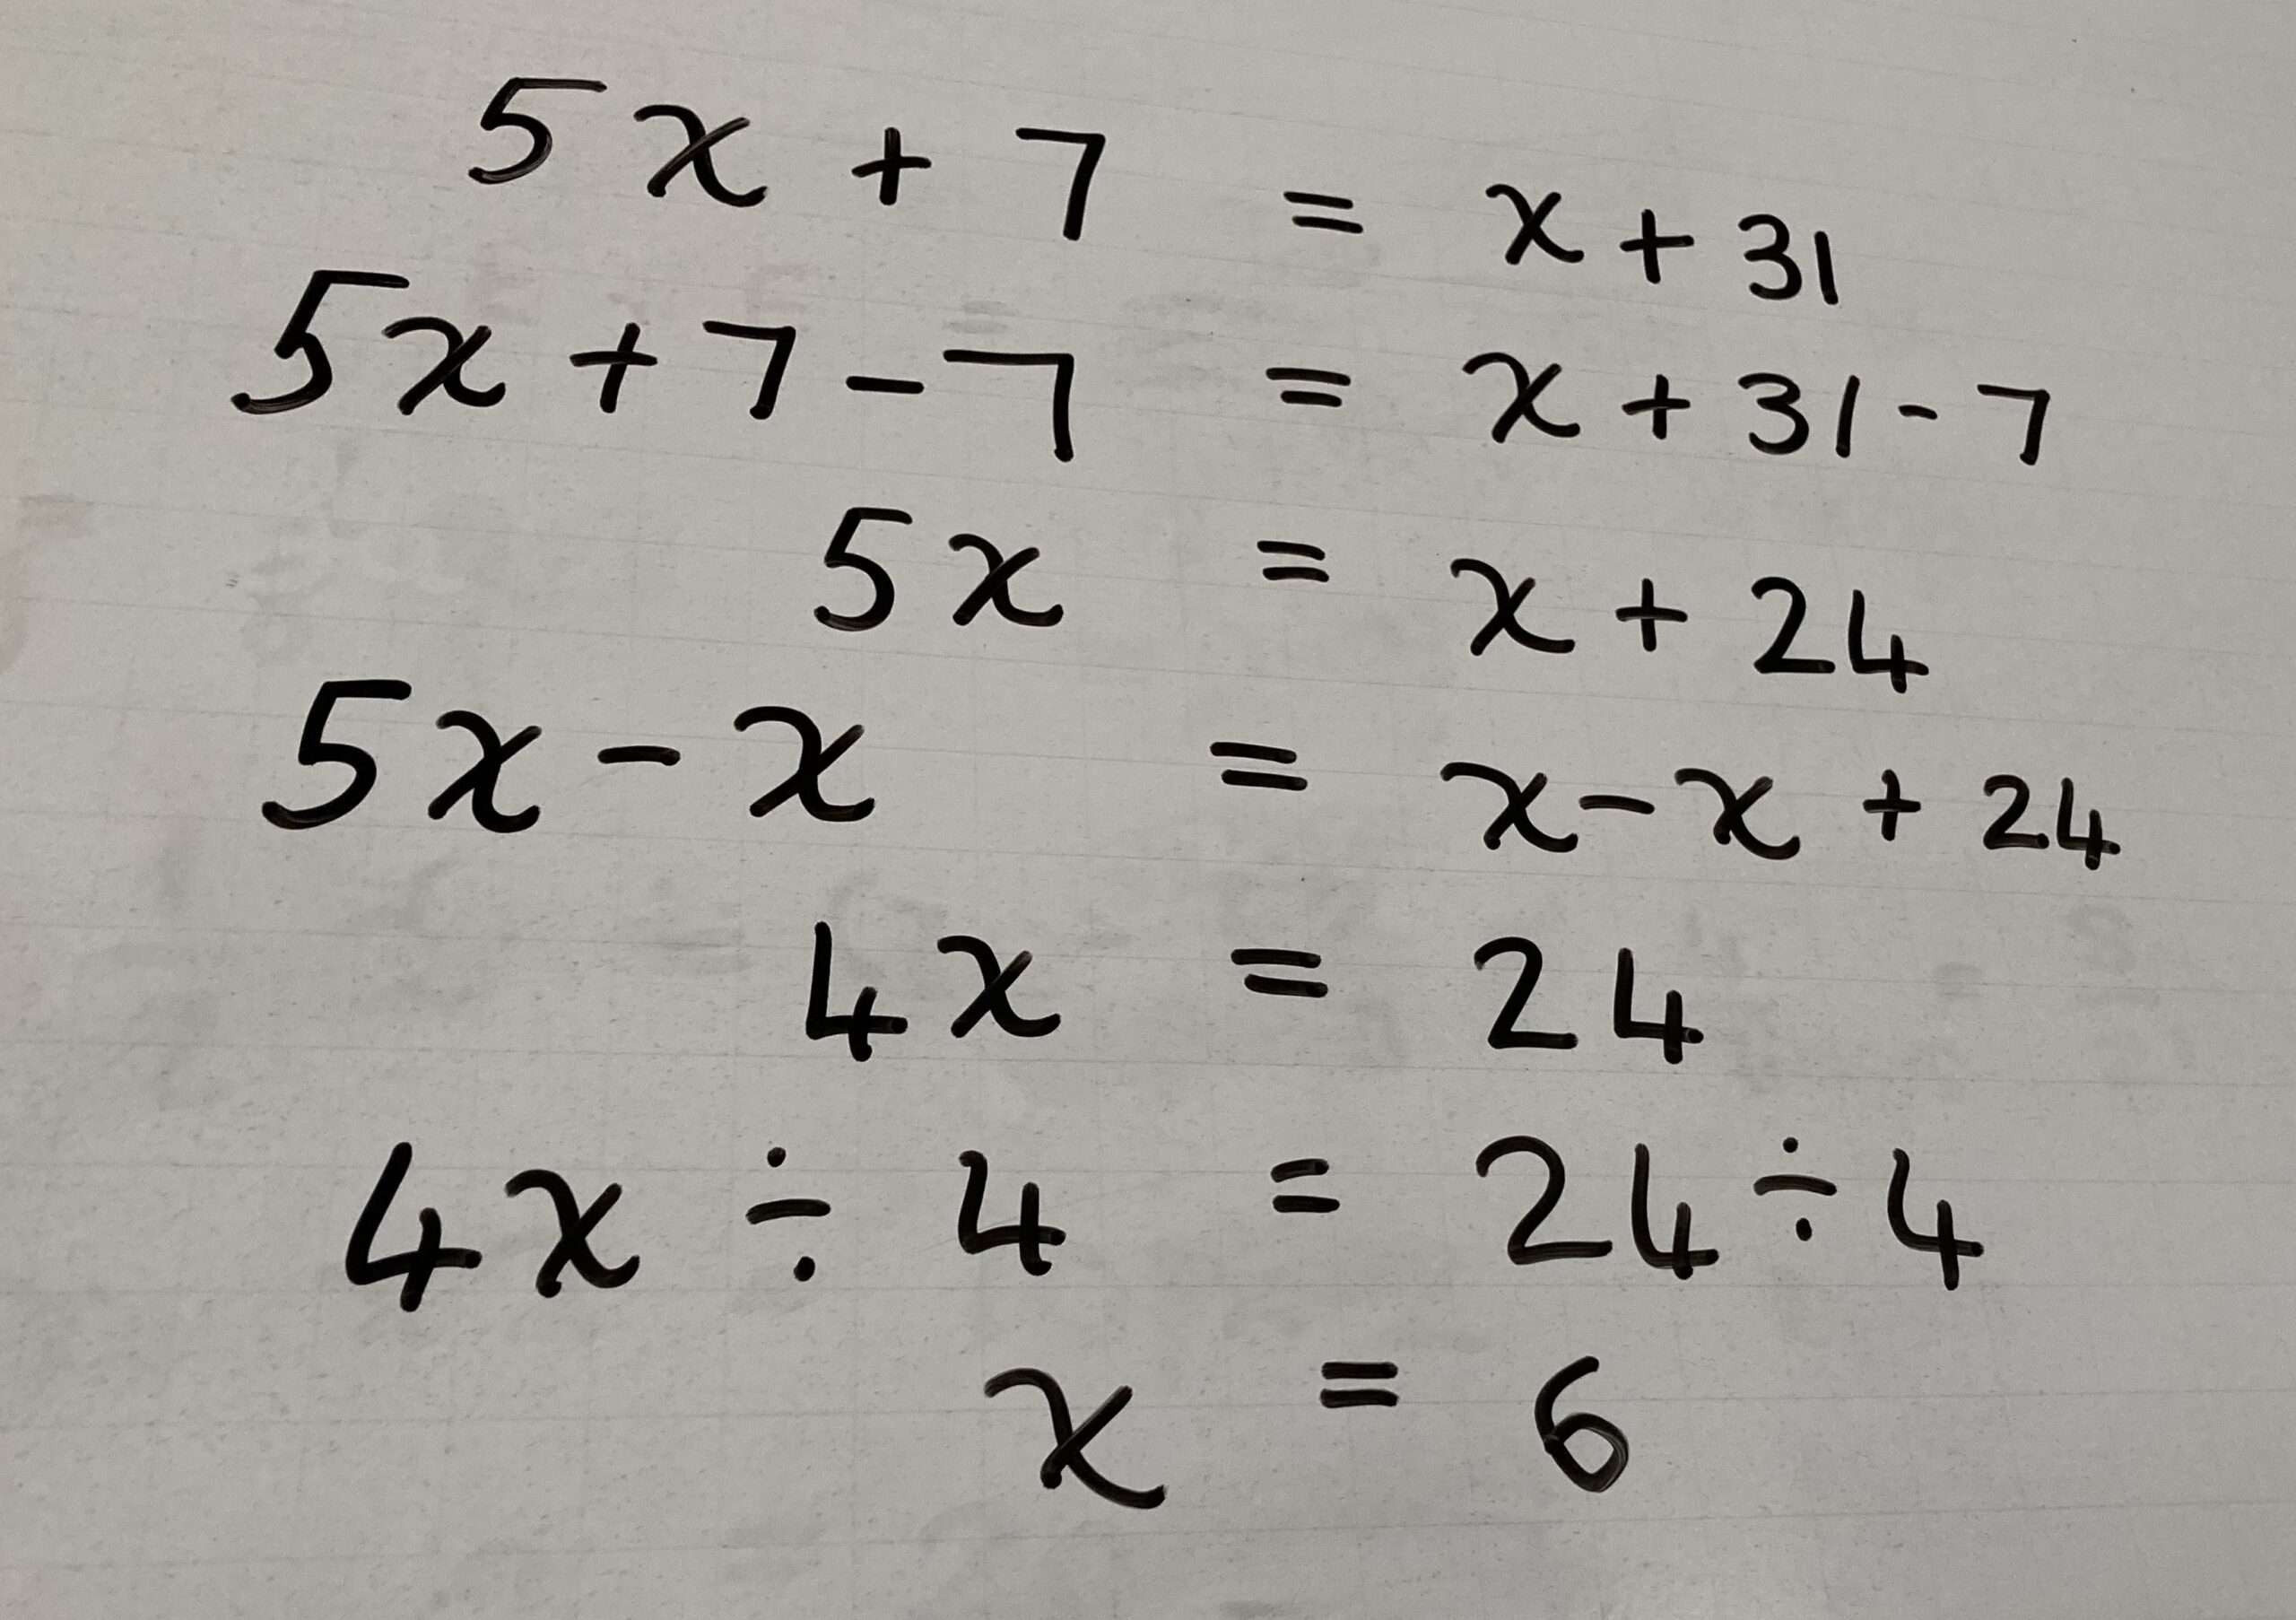 5x + 7 = x + 31
5x + 7 - 7 = x + 31 - 7
5x = x + 24
5x - x = x - x + 24
4x = 24
4x ÷ 4 = 24 ÷ 4
x = 6